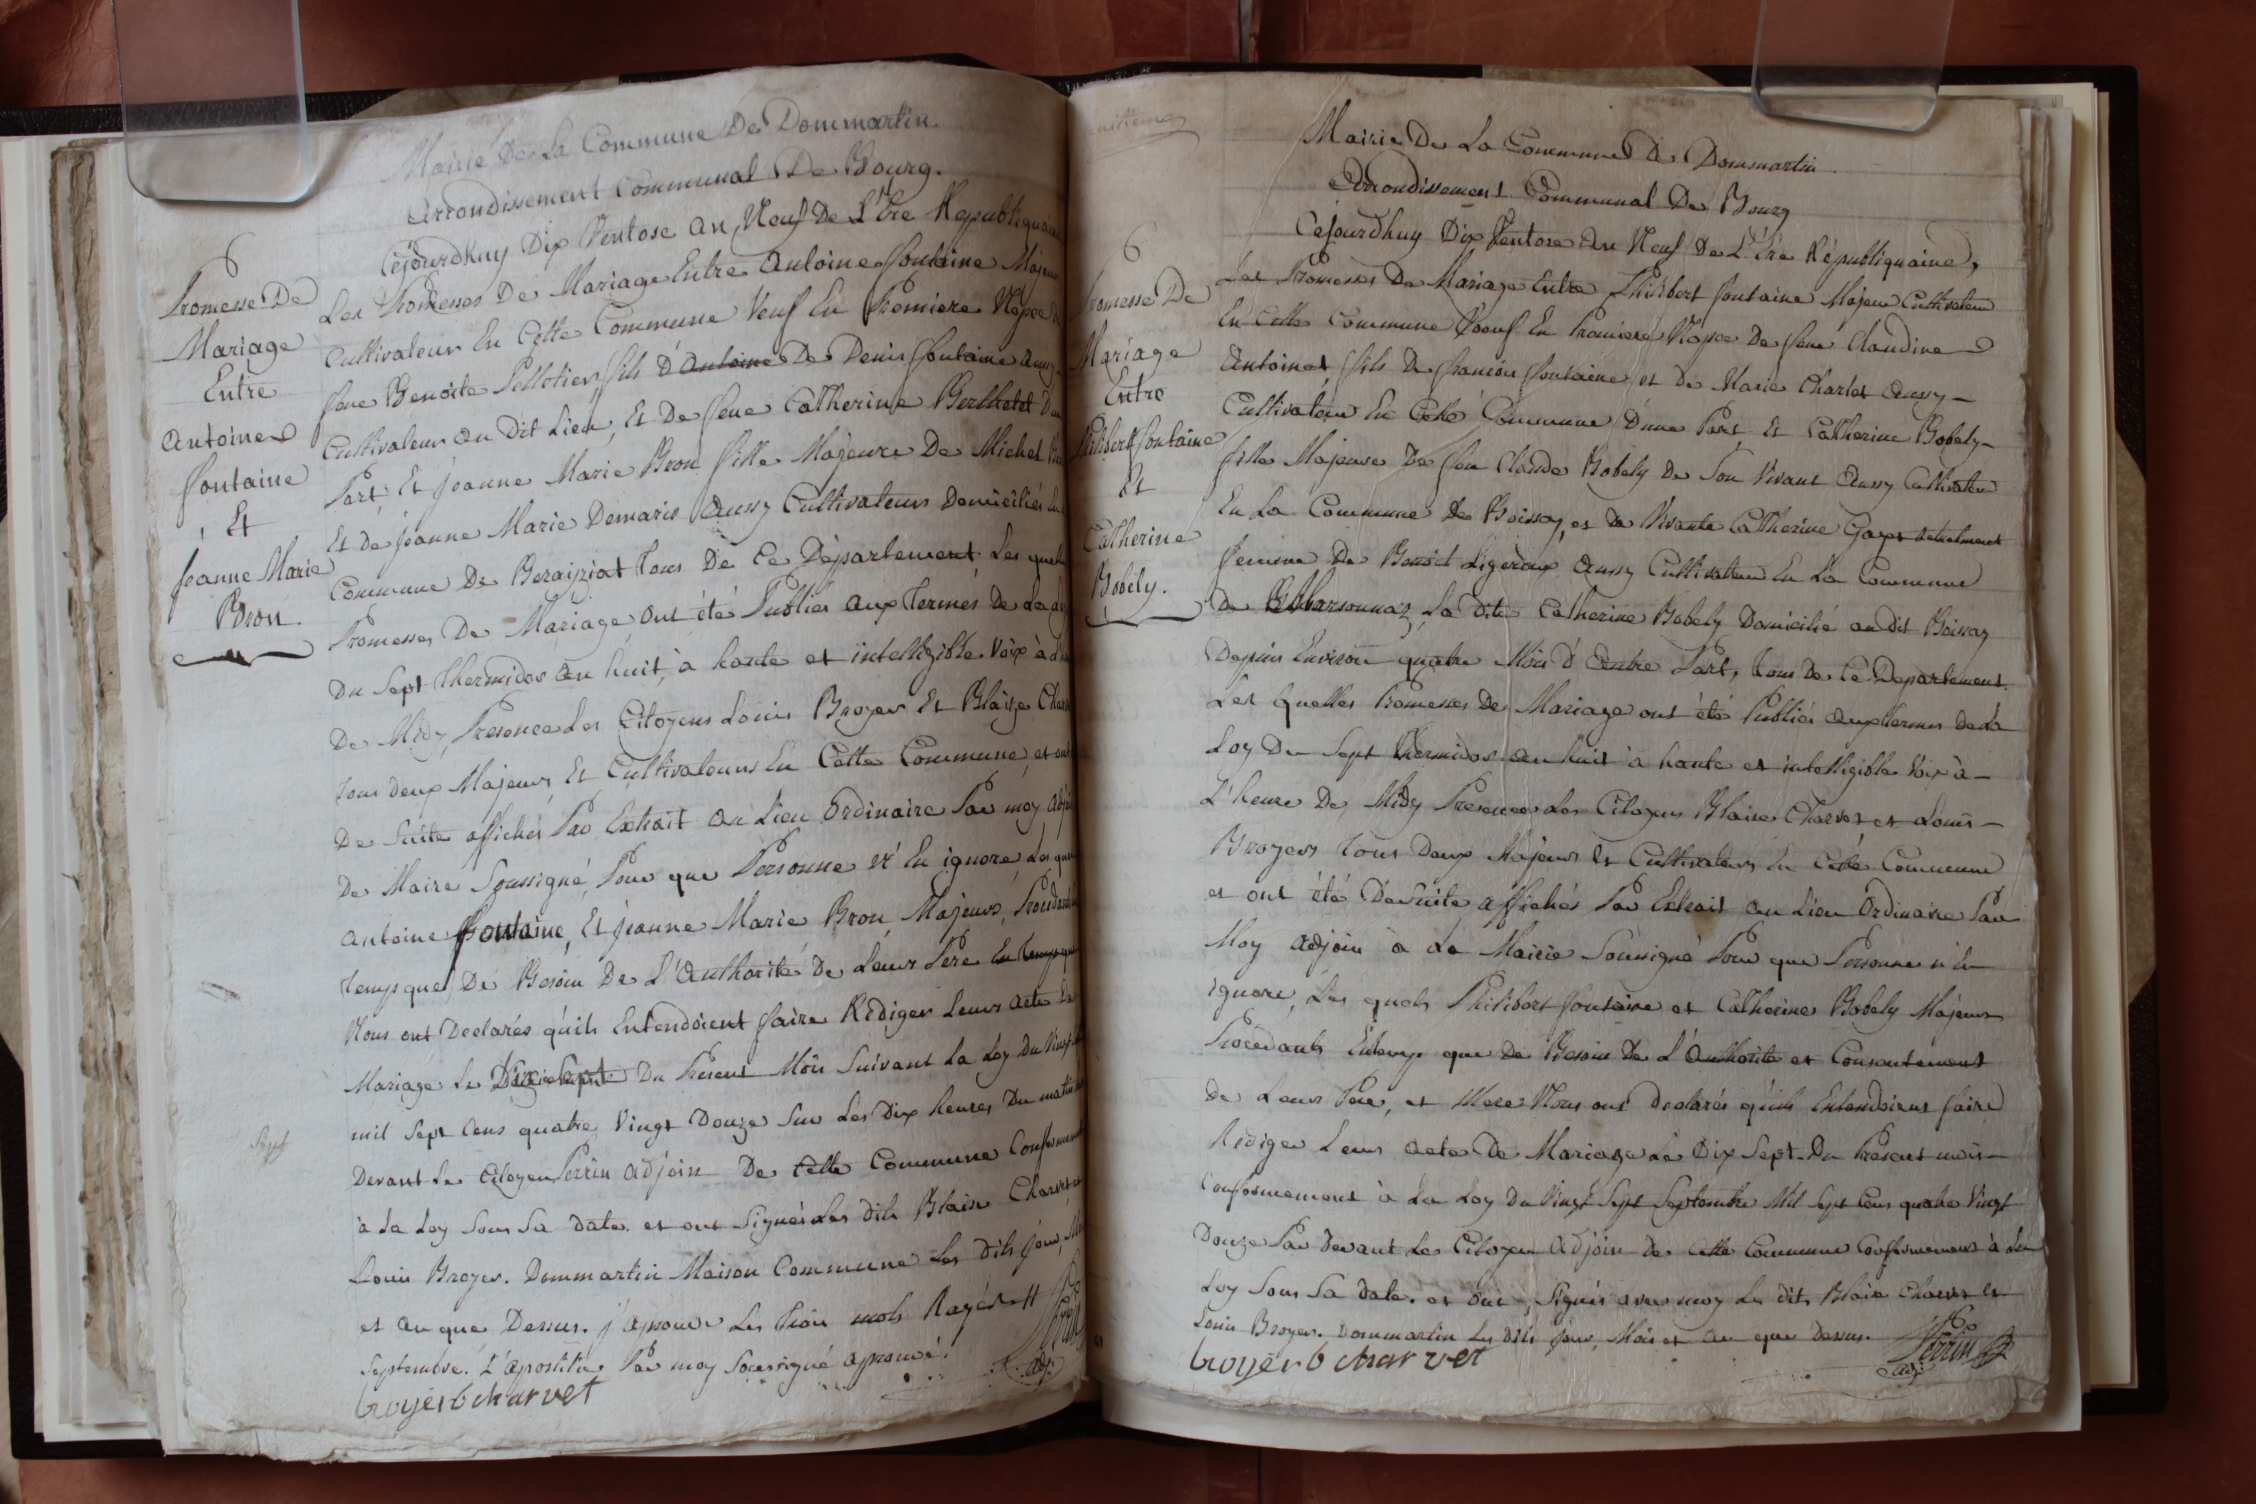 Mairie De La Commune De Dommartin.
Arrondissement Communal De Bourg.
Céjourdhuy Dix Ventose an Neuf De L'Ere Republiquaine
Promesse De
Mariage
Entre
Antoine
fontaine
Et
Jeanne Marie
Bron
Les Promesses De Mariage Entre Antoine fontaine Majeur
Cultivateur En Cette Commune Veuf En Premiere Nopce de
feue Benoite Pelletier fils D'Antoine De Denis fontaine aussy
Cultivateur au Dit Lieu, Et De feue Catherine Berthelet D'une
Part, Et Jeanne Marie Bron fille Majeure De Michel Bron
Et De Jeanne Marie Demaris Aussy Cultivateurs Domiciliés En la
Commune De Beraiziat Tous De Ce Département Les quelles
Promesses De Mariage ont été Publiés aux Termes De La Loy
Du Sept Thermidor an huit, à haute et intelligible Voix à
De Midy, Presence Les Citoyens Louis Broyer Et Blaise Charvet
Tous deux Majeurs Et Cultivateurs En Cette Commune, et ont
De Suite affichés Par Extrait au Lieu Ordinaire Par moy
De Maire Soussigné, Pour que Personne N'En ignore, Les quels
Antoine fontaine, Et Jeanne Marie Bron, Majeurs,
Temps que De Besoin De L'Authorité De Leurs Pere En Temps que
Nous ont Declarés quils Entendoient faire Rédiger Leurs acte De
Mariage Le Dixsept Du Present Mois Suivant La Loy Du Vingt
Sept
mil Sept Cens quatre Vingt Douze Sur Les Dix heures Du matin
Devant Le Citoyen Perrin adjoin De Cette Commune Conformement
à La Loy Sous Sa date. et ont Signés Les dits Blaise Charvet et
Louis Broyer. Dommartin Maison Commune Les Dits Jour, Mois
et an que Dessus. j'aprouve Les Trois mots Rayés
Septembre. L'apostille Par moy Soussigné aprouvé.
broyer b charvet
Perrin
adj.
Mairie De La Commune De Dommartin.
Arrondissement Communal De Bourg
Céjourdhuy Dix Ventose an Neuf De L'Ere Républiquaine,
Promesse De
Mariage
Entre
Philibert fontaine
Et
Catherine
Bobely.
Les Promesses De Mariage Entre Philibert fontaine Majeur Cultivateur
En Cette Commune Voeuf En Premiere Nopce De feue Claudine
Antoinet fils De françois fontaine et De Marie Charlet Aussy
Cultivateur En Cette Commune D'une Part, Et Catherine Bobely
fille Majeure De feu Claude Bobely De Son Vivant Aussy Cultivateur
En La Commune De Boissey, et De Vivante Catherine Gayet actuelment
femme De Benoit Ligeroux Aussy Cultivateur En La Commune
De Marsonnaz, La Dite Catherine Bobely Domicilié au dit Boissey
Depuis Environ quatre Mois D'Autre Part, Tous De Ce Departement
Les Quelles Promesses De Mariage ont été Publiés aux Termes De La
Loy Du Sept Thermidor an huit à haute et intelligible Voix à
L'heure De Midy Presence Les Citoyens Blaise Charvet et Louis
Broyers Tous Deux Majeurs Et Cultivateurs En Cette Commune
et ont été De Suite affichés Par Extrait au Lieu Ordinaire Par
Moy Adjoin à La Mairie Soussigné Pour que Personne n'En
ignore, Les quels Philibert fontaine et Catherine Bobely Majeurs
Procedants Entemps que De Besoin De L'Authorité et Consentement
De Leurs Pere, et Mere Nous ont declarés quils Entendoient faire
Rédiger Leurs acte De Mariage Le Dix Sept Du Present mois
Conformement à La Loy Du Vingt Sept Septembre Mil Sept Cens quatre Vingt
Douze Par Devant Le Citoyen Adjoin De Cette Commune Conformement à La
Loy Sous Sa date. et ont Signés avec moy Les dits Blaise Charvet Et
Louis Broyer. Dommartin Les Dits Jour, Mois et an que Dessus.
broyer b charvet
Perrin
adj.